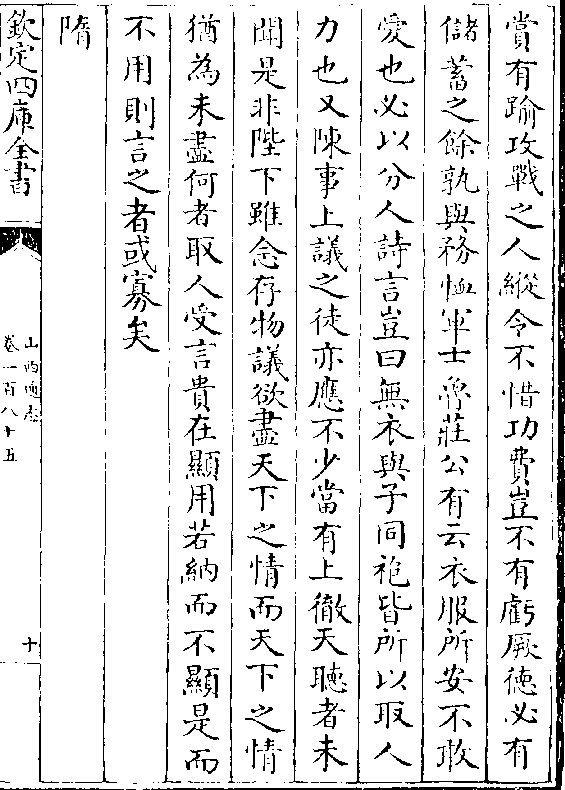 賞有踰攻戰之人縱令不惜功費豈不有虧厥德必有
儲蓄之餘孰與務恤軍士魯莊公有云衣服所安不敢
愛也必以分人詩言豈曰無衣與子同袍皆所以取人
力也又陳事上議之徒亦應不少當有上徹天聽者未
聞是非陛下雖念存物議欲盡天下之情而天下之情
猶為未盡何者取人受言貴在顯用若納而不顯是而
不用則言之者或寡矣
隋
欽定四庫全書
山西通志
卷一百八十五
十